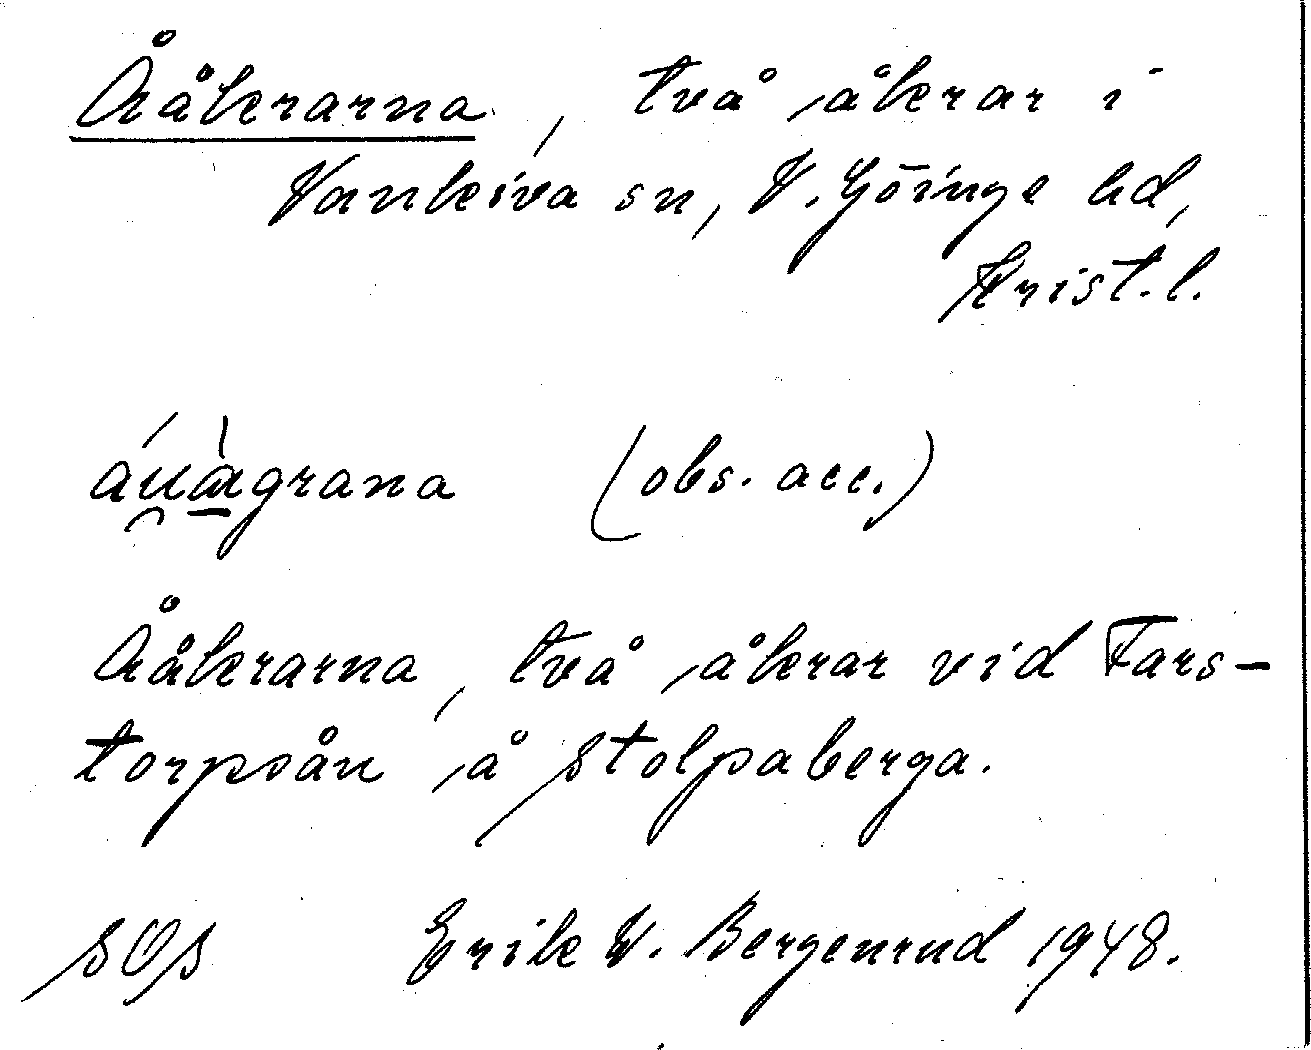 Ååkrarna, två åkrar i
Vankiva sn, V. Göinge hd,
Krist. l.
(obs. acc.)
Ååkrarna, två åkrar vid Fars-
torpsån å Stolpaberga.
SOS Erik W. Bergenrud 1948.